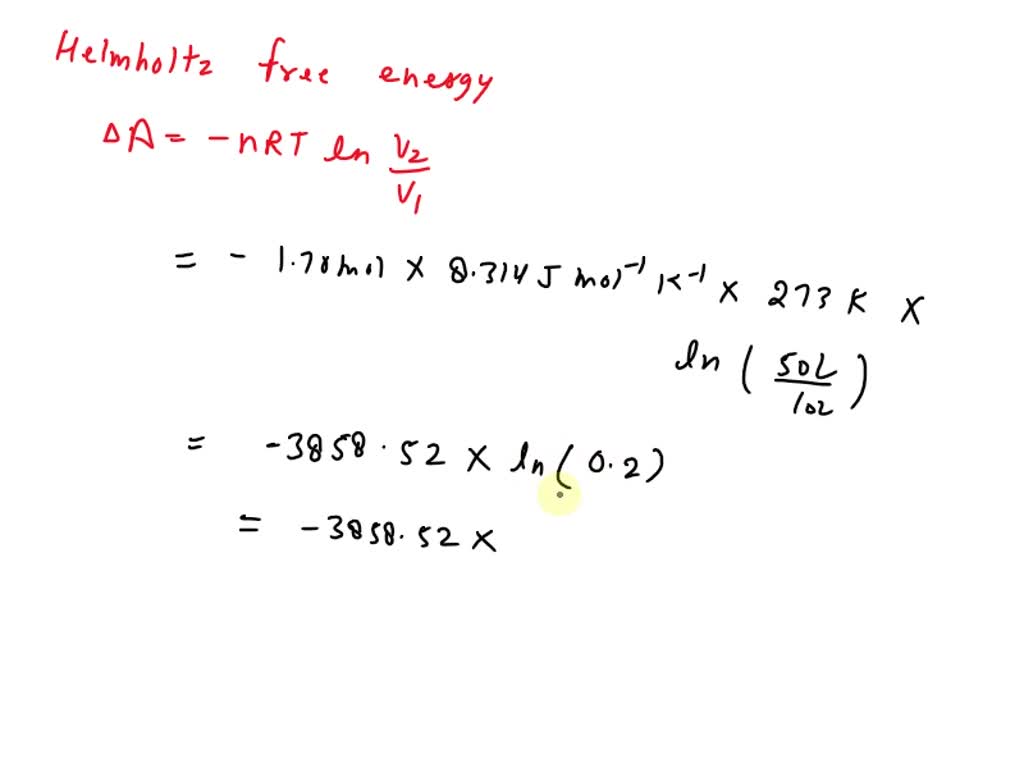 Helmholtz free energy
ΔA = -nRT ln V2/V1
= - 1.70mol × 8.314 J mol⁻¹ K⁻¹ × 273 K ×
ln ( 50L/10L )
= -3858.52 × ln(0.2)
= -3858.52 ×